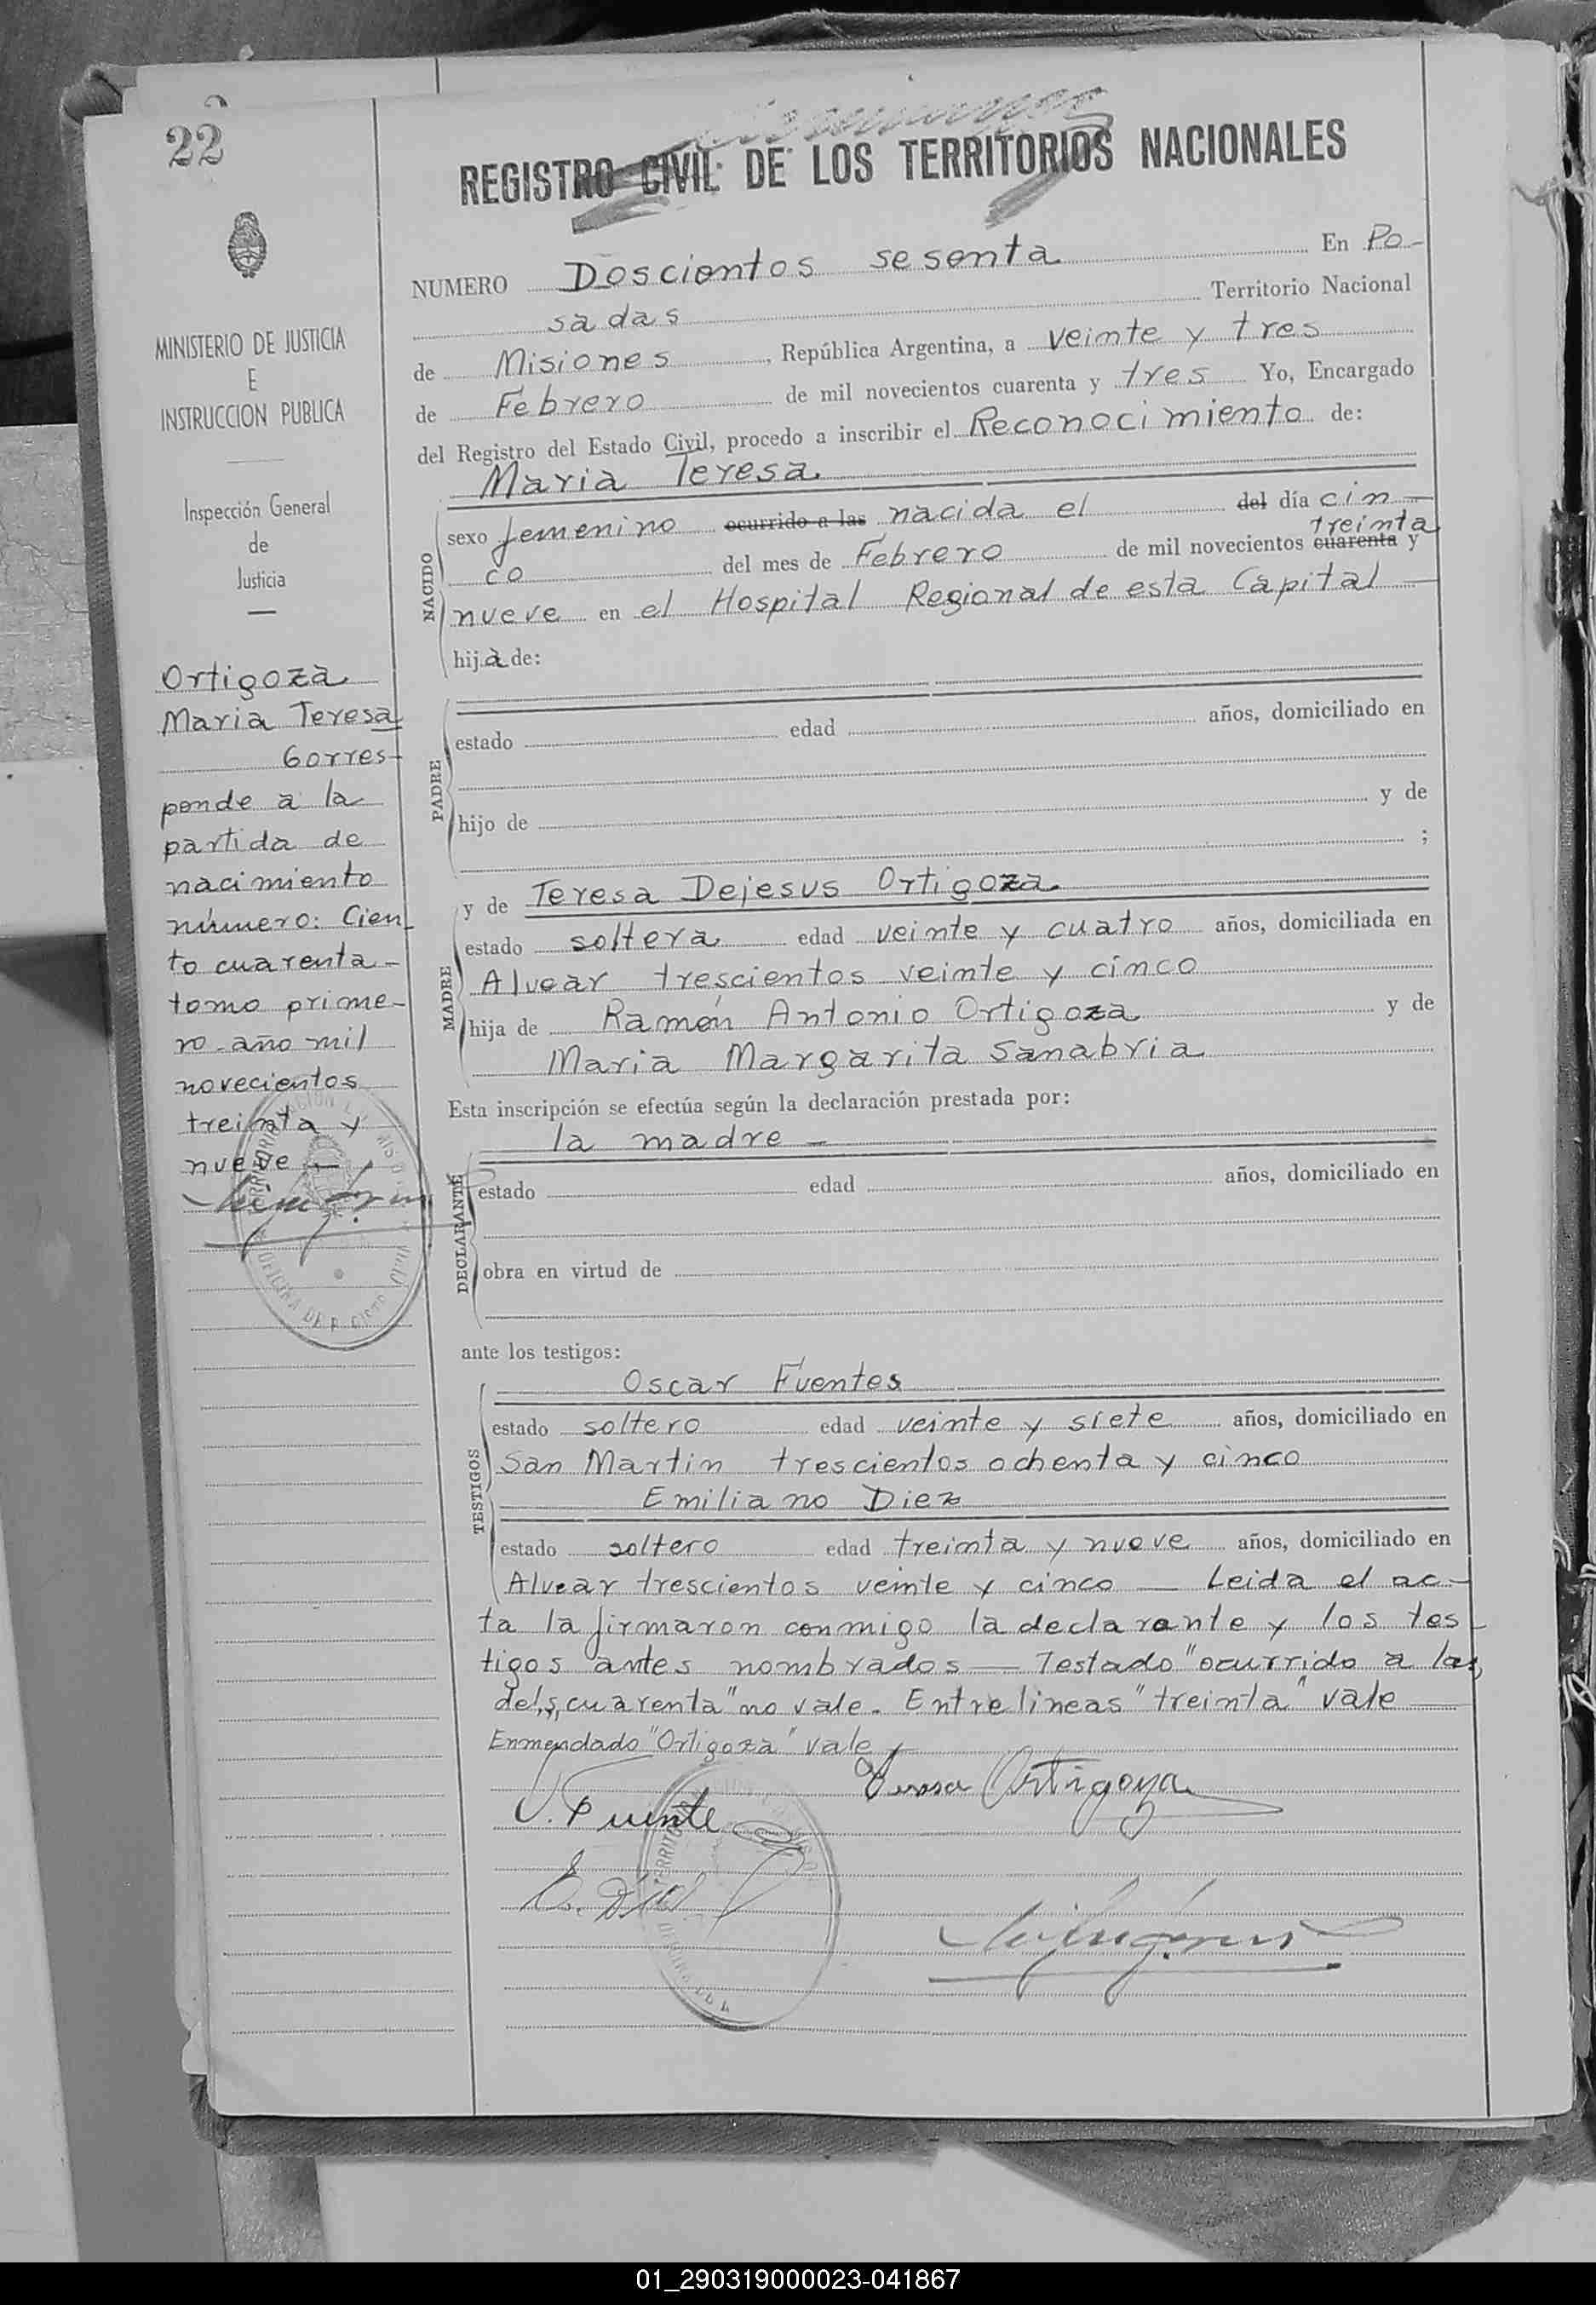 22
REGISTRO CIVIL DE LOS TERRITORIOS NACIONALES
MINISTERIO DE JUSTICIA
E
INSTRUCCION PUBLICA
Inspección General
de
Justicia
Ortigoza
Maria Teresa
Corres-
ponde a la
partida de
nacimiento
número: Cien
to cuarenta -
tomo prime-
ro - año mil
novecientos
treinta y
nueve -
NUMERO Doscientos sesenta En Po-
sadas Territorio Nacional
de Misiones, República Argentina, a veinte y tres
de Febrero de mil novecientos cuarenta y tres Yo, Encargado
del Registro del Estado Civil, procedo a inscribir el Reconocimiento de:
Maria Teresa
NACIDO
sexo femenino ocurrido a las nacida el del día cin-
treinta
co del mes de Febrero de mil novecientos cuarenta y
nueve en el Hospital Regional de esta Capital -
hija de:
PADRE
estado edad años, domiciliado en
hijo de y de
;
MADRE
y de Teresa Dejesus Ortigoza
estado soltera edad veinte y cuatro años, domiciliada en
Alvear trescientos veinte y cinco
hija de Ramón Antonio Ortigoza y de
Maria Margarita Sanabria
Esta inscripción se efectúa según la declaración prestada por:
la madre -
DECLARANTE
estado edad años, domiciliado en
obra en virtud de
ante los testigos:
TESTIGOS
Oscar Fuentes
estado soltero edad veinte y siete años, domiciliado en
San Martin trescientos ochenta y cinco
Emiliano Diez
estado soltero edad treinta y nueve años, domiciliado en
Alvear trescientos veinte y cinco — Leida el ac-
ta la firmaron conmigo la declarante y los tes-
tigos antes nombrados — Testado "ocurrido a las,
del, cuarenta" no vale. Entrelineas "treinta" vale
Enmendado "Ortigoza" vale
Teresa Ortigoza
O. Fuente
E. Diez
01_290319000023-041867